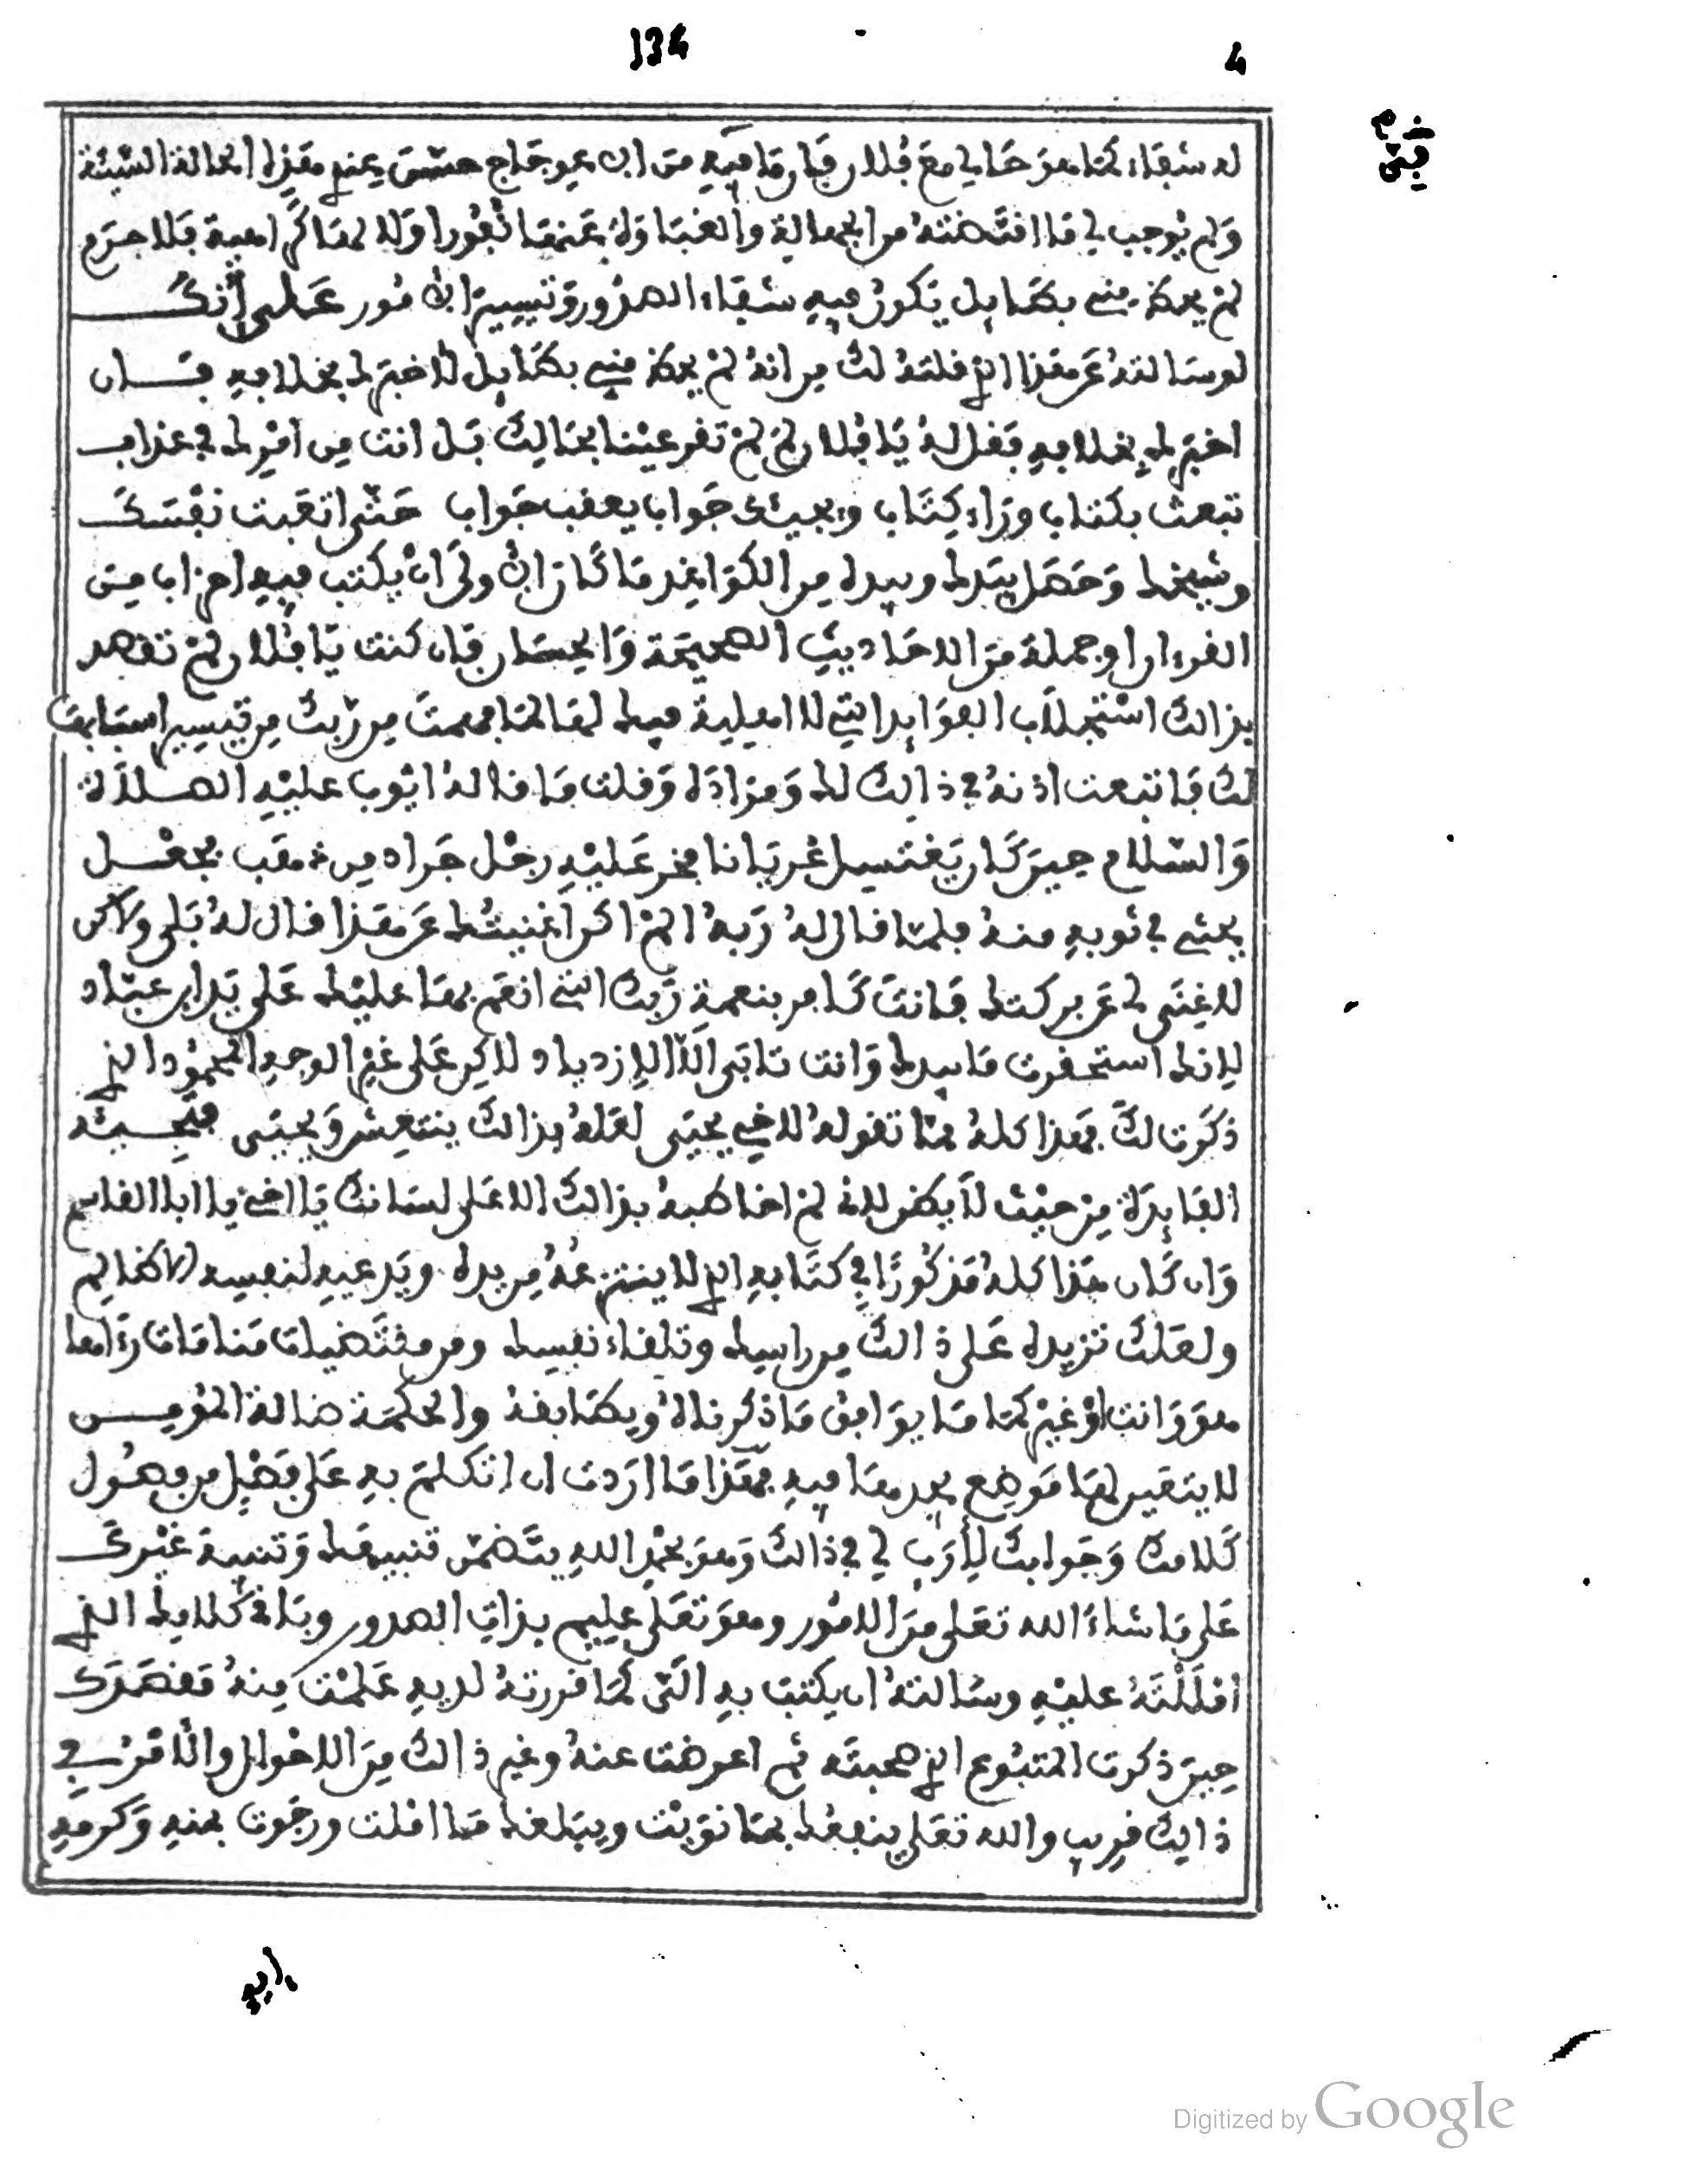 134
4
له شفاء كما هو حالي مع فلان فان ما فيه من ان عوجاج حسن عنهم هذه الحالة السيئة
ولم يوجب لي ما اقتضته من الجهالة والغباوة عنهما نفورا ولا لهما كراهية فلا جرم
لم يحظ مني بطايل يكون فيه شفاء الصدور وتيسير الامور على انك
لو سالته عن هذا الذي قلته لك من انه لم يحظ مني بطايل لاخبرك بخلافه فان
اخبرك بخلافه فقل له يا فلان لم لم تفرعينا بحالك بل انت من امرك في عذاب
تبعث بكتاب وراء كتاب ويجيئك جواب يعقب جواب حتى اتعبت نفسك
وشيخك وحصل بيدك وبيده من الكواغد ما كان الاولى ان يكتب فيه احزاب من
القرءان او جملة من الاحاديث الصحيحة والحسان فان كنت يا فلان لم تقصد
بذالك استجلاب الفوايد التي لا اهلية فيك لها لما فهمت من ربك من تيسير اسبابها
لك فاتبعت اذنه في ذالك لك ومراده وقلت ما قاله ايوب عليه الصلاة
والسلام حين كان يغتسل عريانا فخر عليه رجل جراد من ذهب فجعل
يحثي في ثوبه منه فلما قال له ربه الم اكن اغنيتك عن هذا قال له بلى ولاكن
لا غنى لي عن بركتك فانت كافر بنعمة ربك التي انعم بها عليك على يد ابن عباد
لانك استحقرت ما بيدك وانت تابى الا الازدياد لاكن على غير الوجه المحمود الذي
ذكرت لك فهذا كله مما تقوله لاخي يحيى لعله بذالك ينتعش ويحيى فتجيئه
الفايدة من حيث لا يظن لانه لم اخاطبه بذالك الا على لسانك يا اخي يا ابا القاسم
وان كان هذا كله مذكورا في كتابه الذي لا ينتزعه من يده ويدعيه لنفسه لاكنا لم
ولعلك تزيده على ذالك من راسك وتلقاء نفسك ومن مقتضيات منامات رءاها
هو وانت او غيركما ما يوافق ما ذكرناه ويطابقه والحكمة ضالة المومن
لا يتعين لها موضع يجدها فيه فهذا ما اردت ان اتكلم به على فصل من فصول
كلامك وجوابك لارب لي في ذالك وهو بحمد الله يتضمن تنبيهك وتنبيه غيرك
على ما شاء الله تعلى من الامور وهو تعلى عليم بذات الصدور وباقي كلامك الذي
امللته عليه وسالته ان يكتب به الي كما قررته لديه علمت منه مقصدك
حين ذكرت المتبوع الذي صحبته ثم اعرضت عنه وغير ذالك من الاحوال والامر في
ذالك قريب والله تعلى ينفعك بما نويت ويبلغك ما املت ورجوت بمنه وكرمه
Digitized by Google